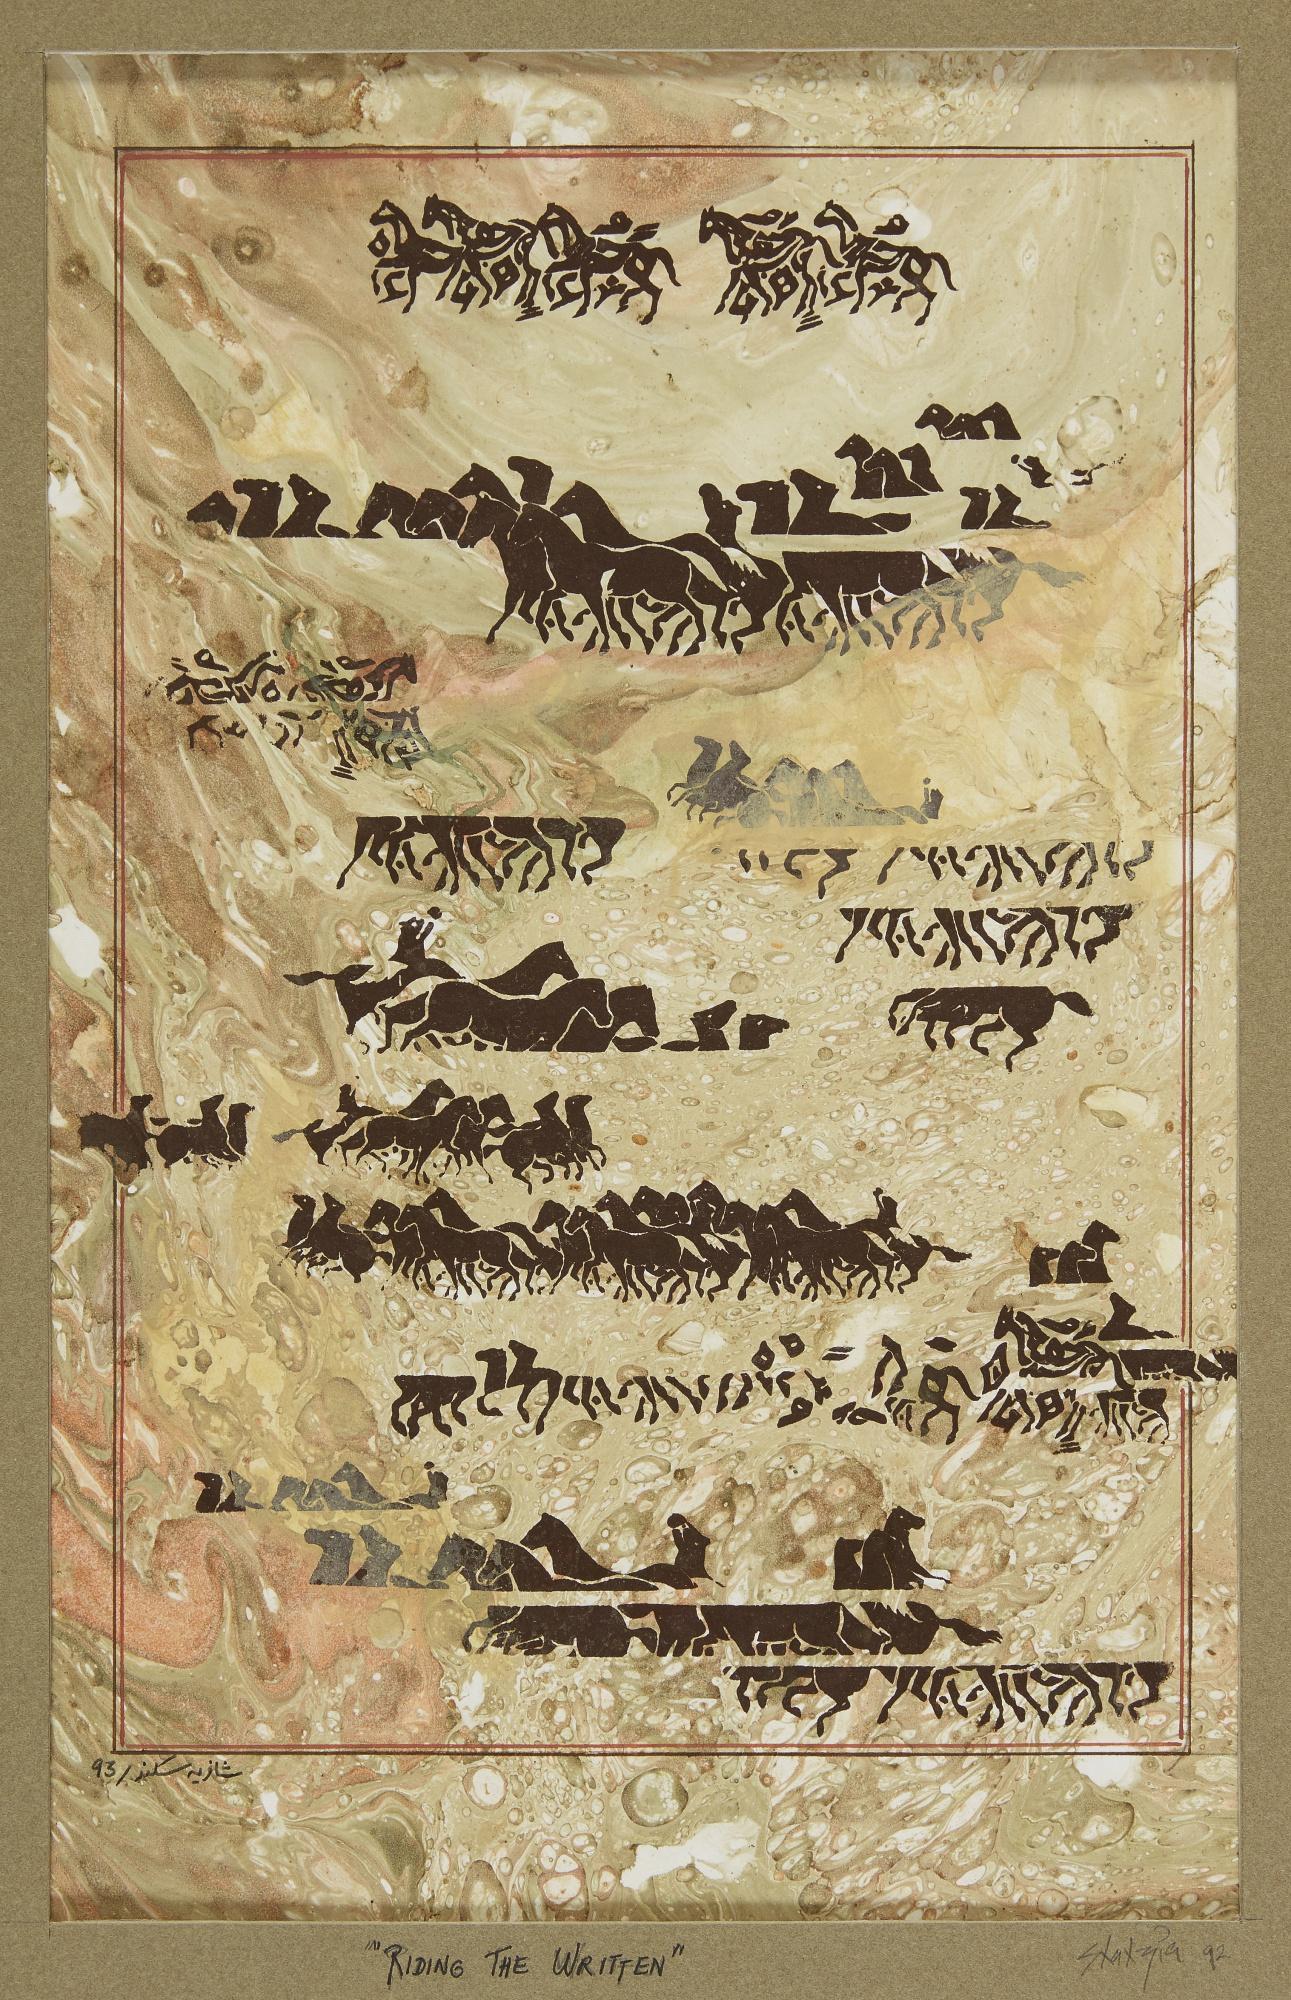 شازیہ سکندر/93
"RIDING THE WRITTEN"
Shahzia 92